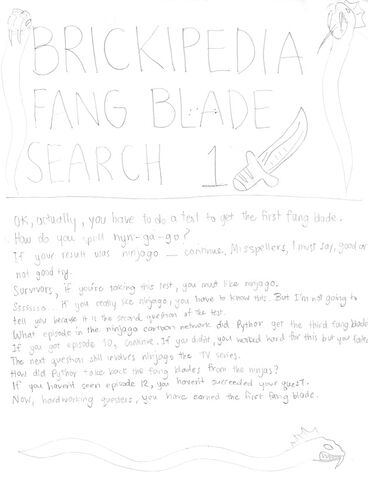 BRICKIPEDIA
FANG BLADE
SEARCH 1
OK, actually, you have to do a test to get the first fang blade.
How do you spell nyn-ga-go?
If your result was ninjago continue. Misspellers, I must say, good or
not good try.
Survivors, if you're taking this test, you must like ninjago.
Sssssss. If you really like ninjago, you have to know this. But I'm not going to
tell you because it is the second question of the test.
What episode in the ninjago cartoon network did Pythor get the third fang blade
If you got episode 10, continue. If you didn't, you worked hard for this but you failed
The next question still involves ninjago the TV series.
How did Pythor take back the fang blades from the ninjas?
If you haven't seen episode 12, you haven't succeeded your quest.
Now, hardworking questers, you have earned the first fang blade.